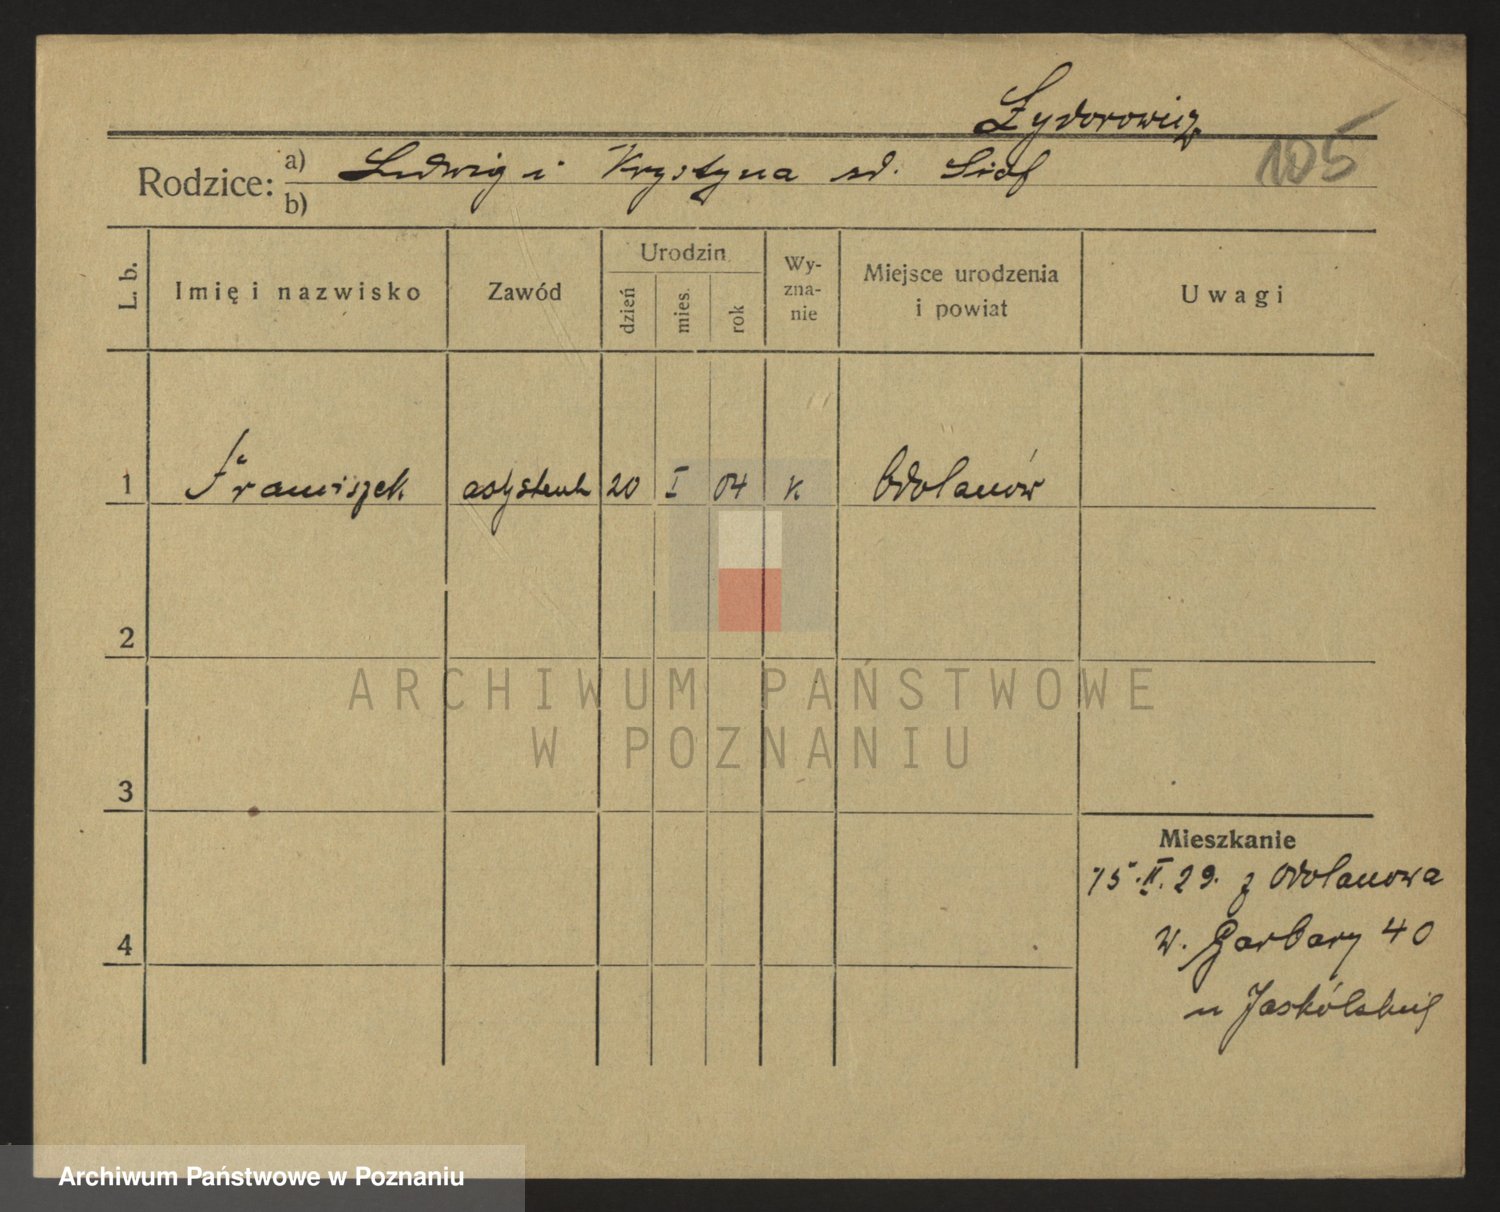 Żydorowicz
105
Rodzice: a) Ludwig i Krystyna zd.
b)
L. b. Imię i nazwisko Zawód Urodzin dzień mies. rok Wyznanie Miejsce urodzenia i powiat Uwagi
1 Franciszek asystent 20 I 04 K Odolanów
2
3
4
Mieszkanie
15.II.29. z Odolanowa
W. Garbary 40
u Jaskólskiej
ARCHIWUM PAŃSTWOWE
W POZNANIU
Archiwum Państwowe w Poznaniu